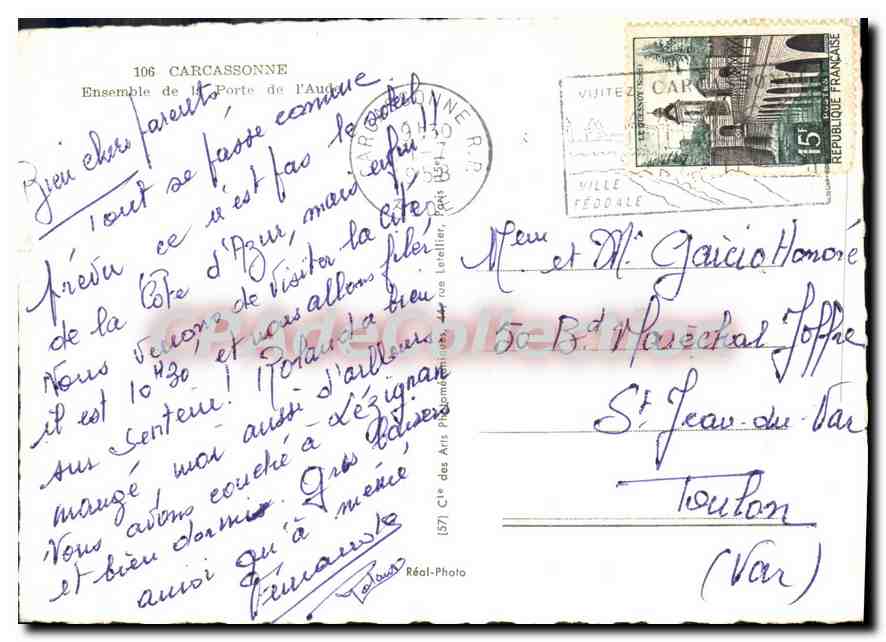 106 CARCASSONNE
Ensemble de la Porte de l'Aude
Bien chers parents,
Tout se passe comme
prévu ce n'est pas le soleil
de la Côte d'Azur, mais enfin!!
Nous venons de visiter la cité,
il est 10H30, et nous allons filer
sur Lenteric! Roland a bien
mangé, moi aussi d'ailleurs
Nous avons couché à Lézignan
et bien dormi. Gros baisers
ainsi qu'à mémé
Roland
CARCASSONNE R.P.
1958
AUDE
VISITEZ
VILLE
FÉODALE
LE QUESNOY (NORD)
POSTES
15F
REPUBLIQUE FRANÇAISE
(57) Cie des Arts Photomécaniques, 44, rue Letellier, Paris (15e)
Réal-Photo
CPAdeCollection
Mme et Mr Garcio Honoré
50 Bd Maréchal Joffre
St Jean-du-Var
Toulon
(Var)